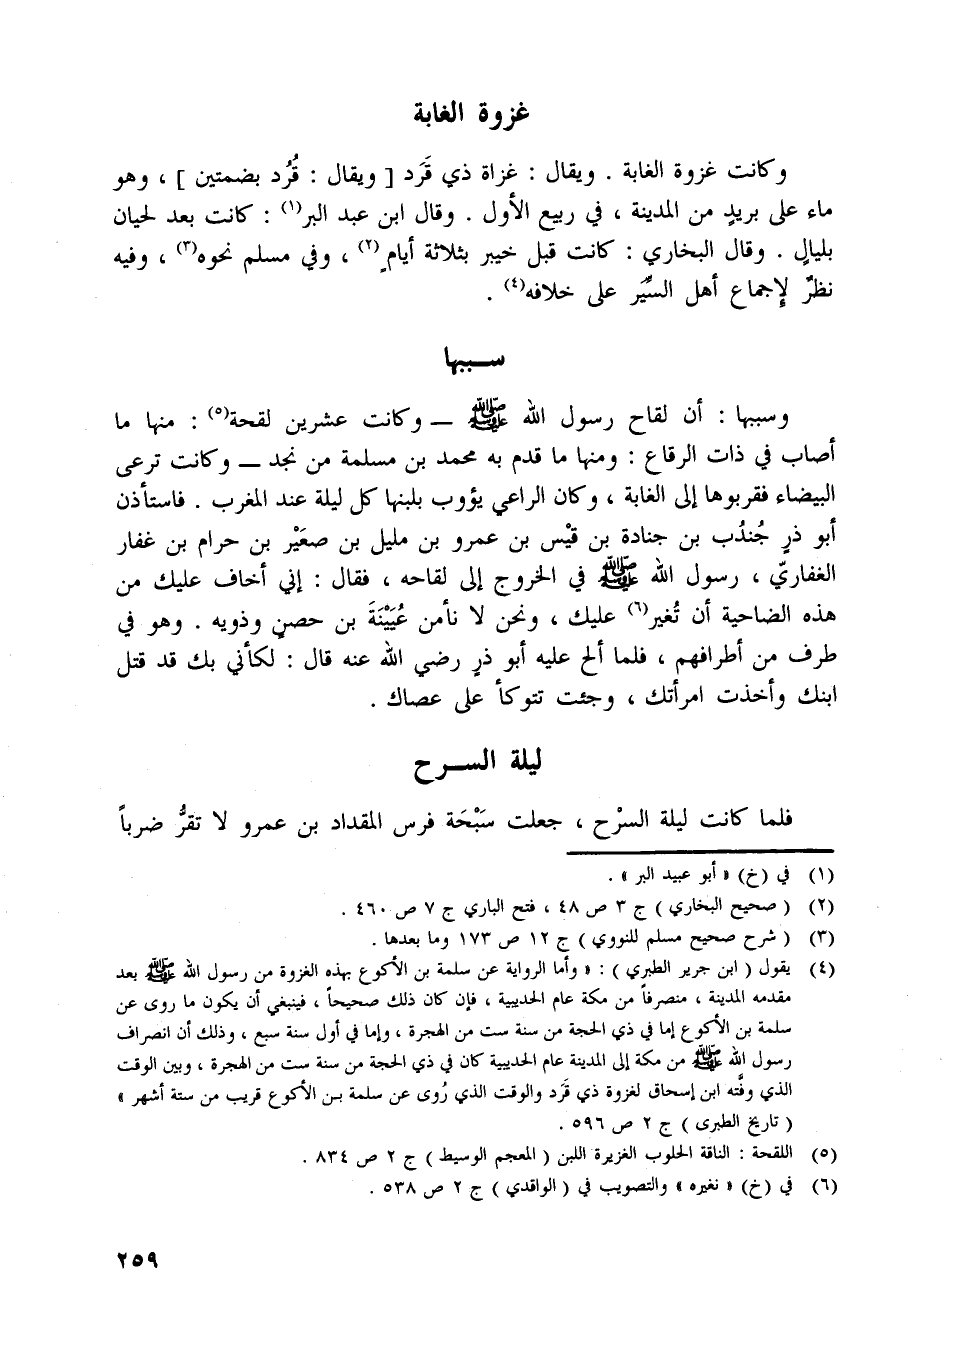 غزوة الغابة
وكانت غزوة الغابة . ويقال : غزاة ذي قَرَد [ ويقال : قُرُد بضمتين ] ، وهو
ماء على بريدٍ من المدينة ، في ربيع الأول . وقال ابن عبد البر(١) : كانت بعد لحيان
بليالٍ . وقال البخاري : كانت قبل خيبر بثلاثة أيامٍ(٢) ، وفي مسلم نحوه(٣) ، وفيه
نظرٌ لإجماع أهل السِّيَر على خلافه(٤) .
ســببها
وسببها : أن لقاح رسول الله ﷺ ــ وكانت عشرين لقحة(٥) : منها ما
أصاب في ذات الرقاع : ومنها ما قدم به محمد بن مسلمة من نجد ــ وكانت ترعى
البيضاء فقربوها إلى الغابة ، وكان الراعي يؤوب بلبنها كل ليلة عند المغرب . فاستأذن
أبو ذرٍ جُندُب بن جنادة بن قيْس بن عمرو بن مليل بن صعَيْر بن حرام بن غفار
الغفاريّ ، رسول الله ﷺ في الخروج إلى لقاحه ، فقال : إني أخاف عليك من
هذه الضاحية أن تُغير(٦) عليك ، ونحن لا نأمن عُيَيْنَةَ بن حصنٍ وذويه . وهو في
طرف من أطرافهم ، فلما ألح عليه أبو ذرٍ رضي الله عنه قال : لكأني بك قد قتل
ابنك وأخذت امرأتك ، وجئت تتوكأ على عصاك .
ليلة الســرح
فلما كانت ليلة السرْح ، جعلت سَبْحَة فرس المقداد بن عمرو لا تقرُّ ضرباً
(١) في (خ) « أبو عبيد البر » .
(٢) ( صحيح البخاري ) ج ٣ ص ٤٨ ، فتح الباري ج ٧ ص ٤٦٠ .
(٣) ( شرح صحيح مسلم للنووي ) ج ١٢ ص ١٧٣ وما بعدها .
(٤) يقول ( ابن جرير الطبري ) : « وأما الرواية عن سلمة بن الأكوع بهذه الغزوة من رسول الله ﷺ بعد
مقدمه المدينة ، منصرفاً من مكة عام الحديبية ، فإن كان ذلك صحيحاً ، فينبغي أن يكون ما روى عن
سلمة بن الأكوع إما في ذي الحجة من سنة ست من الهجرة ، وإما في أول سنة سبع ، وذلك أن انصراف
رسول الله ﷺ من مكة إلى المدينة عام الحديبية كان في ذي الحجة من سنة ست من الهجرة ، وبين الوقت
الذي وقَّته ابن إسحاق لغزوة ذي قَرَد والوقت الذي رُوى عن سلمة بـن الأكوع قريب من ستة أشهر »
( تاريخ الطبرى ) ج ٢ ص ٥٩٦ .
(٥) اللقحة : الناقة الحلوب الغزيرة اللبن ( المعجم الوسيط ) ج ٢ ص ٨٣٤ .
(٦) في (خ) « نغيره » والتصويب في ( الواقدي ) ج ٢ ص ٥٣٨ .
٢٥٩